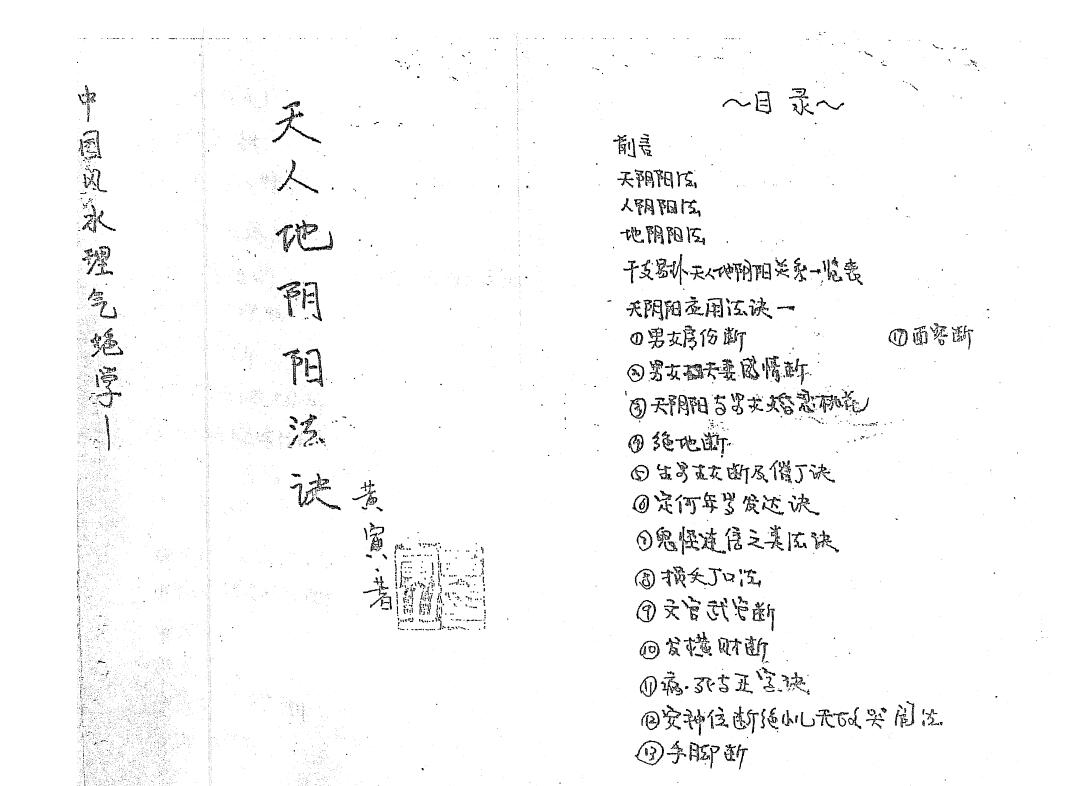 中国风水理气绝学一
天人地阴阳法诀
黄寅·著
~目录~
前言
天阴阳法
人阴阳法
地阴阳法
干支易卦天人地阴阳关系一览表
天阴阳应用法诀一
①男女房份断
⑰面容断
②男女夫妻感情断
③天阴阳与男女婚恋桃花
④绝地断
⑤生男生女断及催丁诀
⑥定何年岁发达诀
⑦鬼怪速信之类法诀
⑧损丁口法
⑨文官武官断
⑩发横财断
⑪病·死与正字诀
⑫安神位断绝小儿哭闹法
⑬手脚断